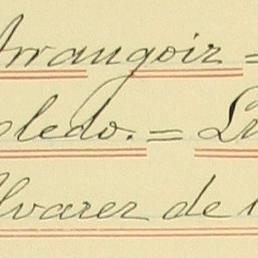 Arrangoiz =
oledo. = Lu
lvarez de l